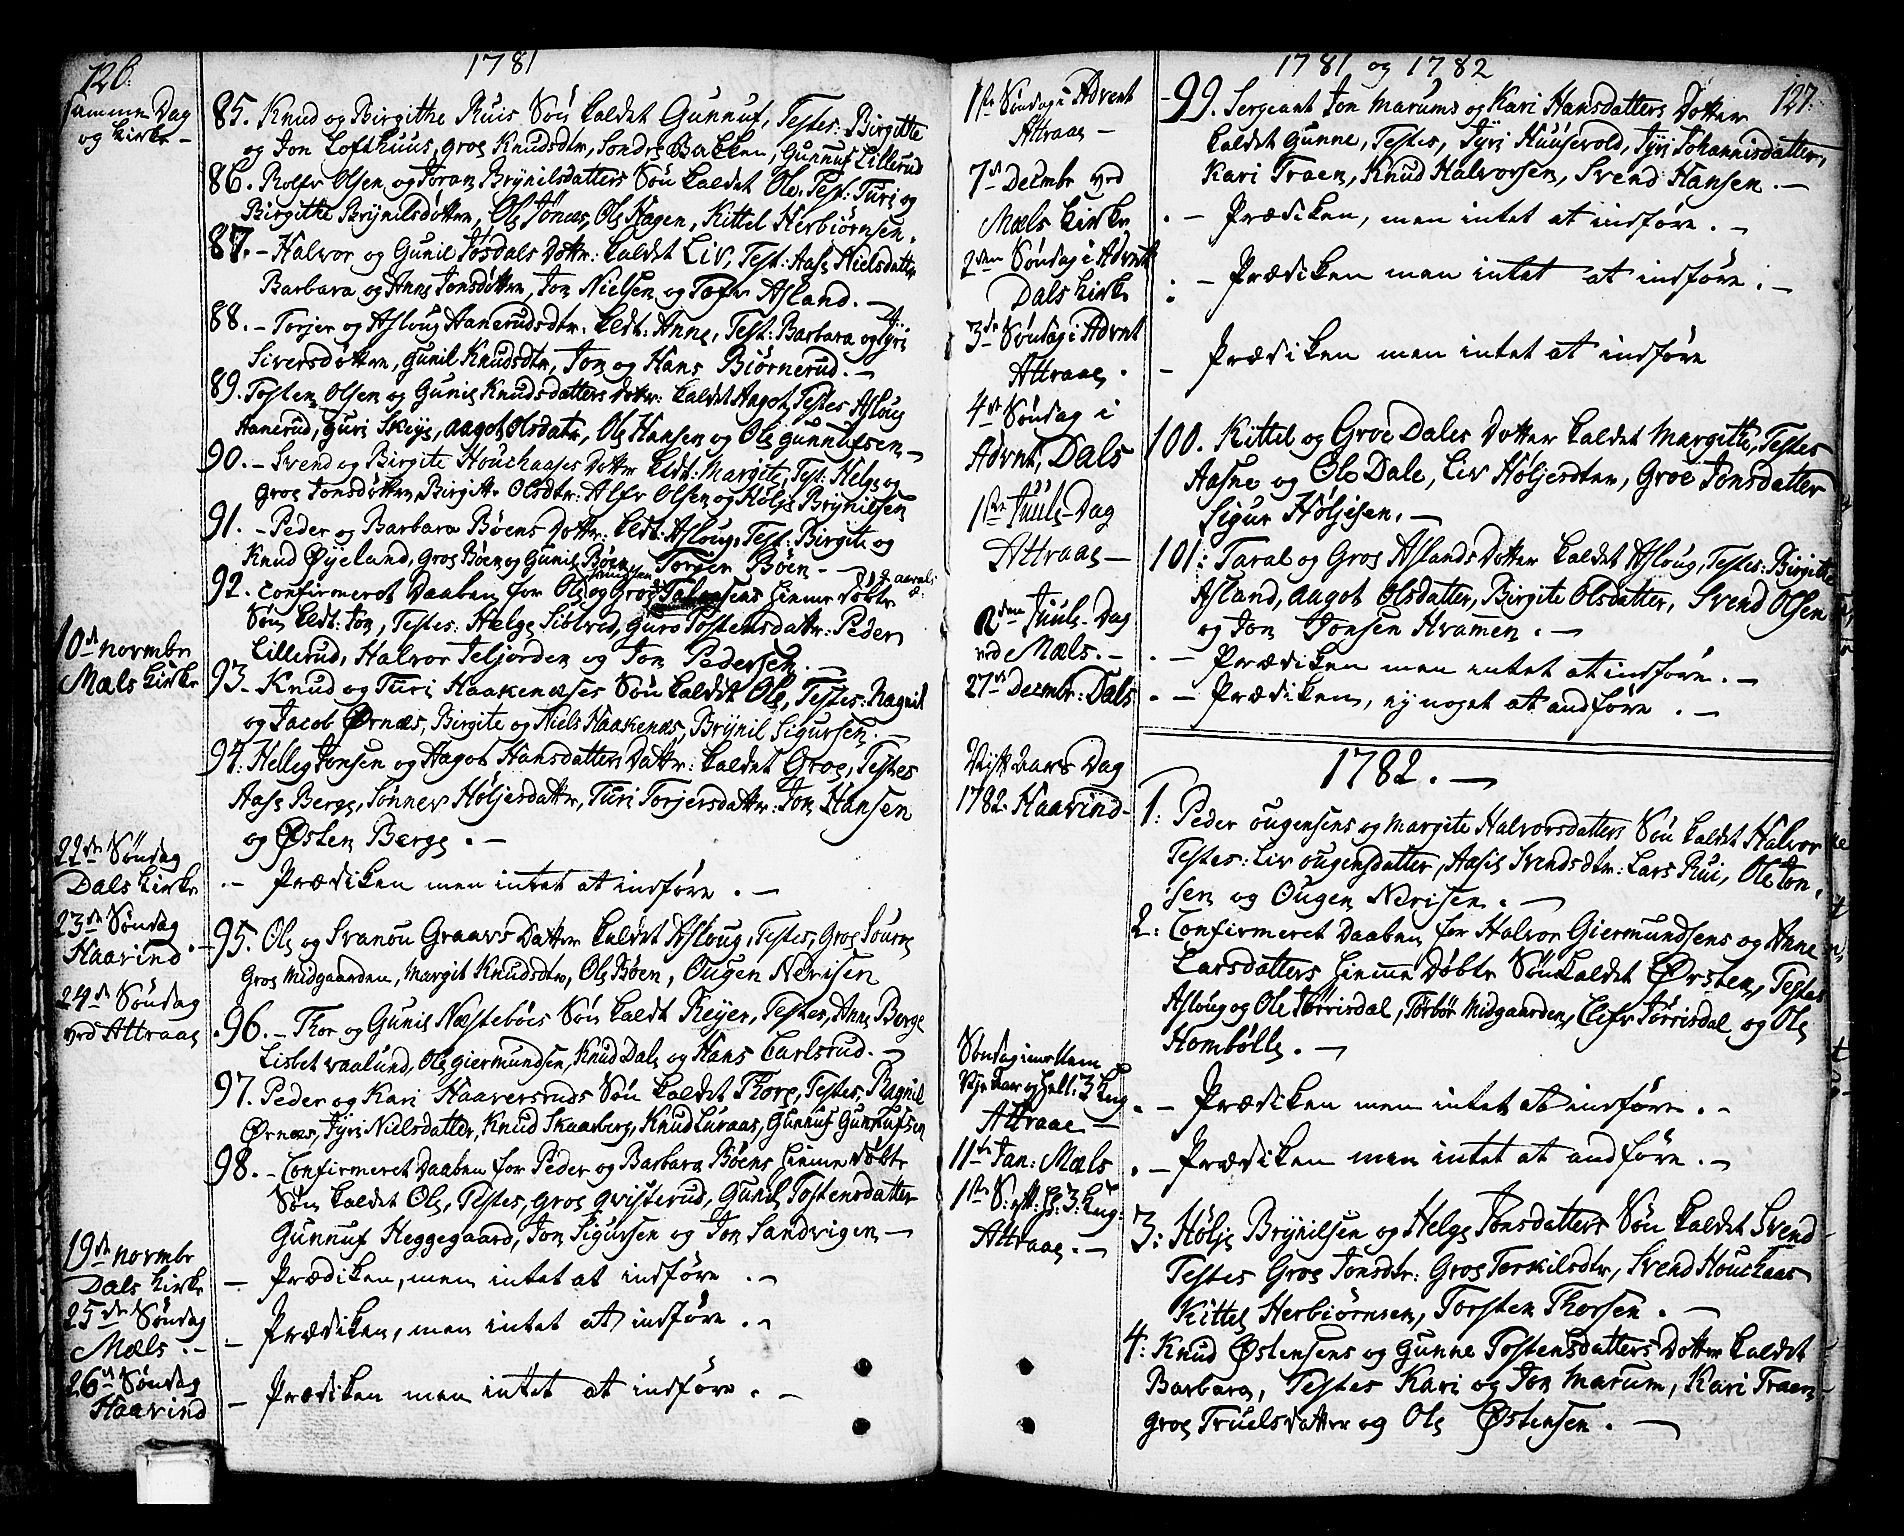 126.
1781
Samme Dag
og Kirke -
85. Knud og Birgithe Ruis Søn kaldet Gunnuf, Testes: Birgitte
og Jon Lofthuus, Groe Knudsdtr, Sondre Bakken, Gunnuf Lillerud
86. Rolfv Olsen og Joran Brÿnilsdatters Søn kaldet Ole, Test: Turi og
Birgithe Brÿnilsdøttre, Ole Jønas, Ole Hagen, Kittel Herbiørnsen.
87. - Halvor og Gunil Jøsdals Dottr: kaldet Liv, Test: Aase Nielsdatter
Barbara og Anne Jonsdøttre, Jon Nielsen og Tofv Asland. -
88. - Torjer og Asloug Aanerudsdtr: kldt: Anne, Test: Barbara og Jÿri
Siversdøttre, Gunil Knudsdtr, Jon og Hans Biørnerud. -
89. Tosten Olsen og Gunil Knudsdatters Dottr: kaldet Aagot, Testes Asloug
Aanerud, Guri Skeÿe, Aagot Olsdatr, Ole Hansen og Ole Gunnufsen -
90. - Svend og Birgite Houchaases Dottr kldt: Margite, Test: Helge og
Groe Jonsdøttre, Birgitte Olsdtr: Alfv Olsen og Hølje Brÿnilsen
91. - Peder og Barbara Bøens Dottr: kldt: Asloug, Test: Birgite og
Knud Øÿeland, Groe Bøen og Gunil Bøen, Torger Bøen -
92. Confirmeret Daaben for Ole og Groe hieme døbte
Søn kldt: Jon, Testes: Helge Sibbrud, Guro Tostensdattr: Peder
Lillerud, Halvor Jeljorden og Jon Pedersen. -
10de novembr
Mæls Kirke
93. - Knud og Turi Haakenæses Søn kaldet Ole, Testes: Ragnil
og Jacob Ørnæs, Birgite og Niels Haakenæs, Brÿnil Sigursen. -
94. Helleg Jonsen og Aagot Hansdatters Dattr: kaldet Groe, Testes
Aase Berge, Sønnev Høljesdattr, Turi Torjersdattr: Jon Hansen
og Østen Berge. -
22de Søndag
Dals Kirke
- Prædiken men intet at indføre. -
23de Søndag
Haavind. -
95. Ole og Svanou Graavs Datter kaldet Asloug, Testes, Groe Souren
Groe Midgaarden, Margit Knudsdtr, Ole Bøen, Ougen Nerisen
24de Søndag
ved Attraae
96. - Thor og Gunil Næstebøes Søn kaldt Reÿer, Testes, Anne Berge
Lisbet Vaalund, Ole Giermundsen, Knud Dale og Hans Carlsrud. -
97. Peder og Kari Haaversruds Søn kaldet Thore, Testes, Ragnil
Ørnæs, Jÿri Nielsdatter, Knud Skaarberg, Knud Luraas, Gunnuf Gunnufsen
98. - Confirmeret Daaben for Peder og Barbara Bøens hieme døbte
Søn kaldet Ole, Testes, Groe Qvisterud, Gunil Tostensdatter
Gunnuf Heggegaard, Jon Sigursen og Jon Sandvigen -
19de novembr
Dals Kirke
- Prædiken, men intet at indføre. -
25de Søndag
Mæls. -
- Prædiken, men intet at indføre. -
26de Søndag
Haavind
- Prædiken men intet at indføre. -
1781 og 1782
127.
1ste Søndag i Advent
Attraae -
- 99. Sergeant Jon Marums og Kari Hansdatters Dotter
kaldet Gunne, Testes, Jÿri Huusevold, Jÿri Johannisdatter,
Kari Traen, Knud Halvorsen, Svend Hansen. -
7de Decmbr ved
Mæls Kirke
. - Prædiken, men intet at indføre. -
2den Søndag i Advnt
Dals Kirke
: - Prædiken men intet at indføre. -
3de Søndag i Advnt
Attraae.
- Prædiken men intet at indføre
4de Søndag i
Advnt, Dals
100. Kittel og Groe Dales Dotter kaldet Margitte, Testes
Aasne og Ole Dale, Liv Høljesdtter, Groe Jonsdatter
Sigur Høljesen. -
1ste Juule-Dag
Attraae -
101: Taral og Groe Aslands Dotter kaldet Asloug, Testes: Birgitte
Asland, Aagot Olsdatter, Birgite Olsdatter, Svend Olsen
og Jon Jonsen Hvamen. -
2den Juule-Dag
ved Mæls. -
. - Prædiken men intet at indføre. -
27de Decmbr: Dals
. - Prædiken, ej noget at andføre. -
1782. -
Nytt Aars Dag
1782. Haavind -
1: Peder Ougensens og Margite Halvorsdatters Søn kaldet Halvor
Testes: Liv Ougensdatter, Aasil Svendsdtr: Lars Rui, Ole Jon-
sen og Ougen Nerisen. -
2: Confirmeret Daaben for Halvor Giermundsens og Anne
Larsdatters hieme døbte Søn kaldet Ørsten, Testes
Asloug og Ole Jørrisdal, Torbør Midgaarden, Clefv Jørrisdal og Ole
Hombølle. -
Søndag imellem
Nye Aar og hell: 3 Kng
Attraae -
. - Prædiken men intet at indføre. -
11te Jan: Mæls
. - Prædiken men intet at andføre. -
1ste S: eft: H: 3: Kng:
Attraae. -
3: Hølje Brÿnilsen og Helge Jonsdatters Søn kaldet Svend
Testes Groe Jonsdtr: Groe Torkilsdtr, Svend Houchaas
Kittel Herbiørnsen, Torsten Thorsen. -
4: Knud Østensens og Gunne Tostensdatters Dotter kaldet
Barbara, Testes Kari og Jon Marum, Kari Traen
Groe Truelsdatter og Ole Østensen. -